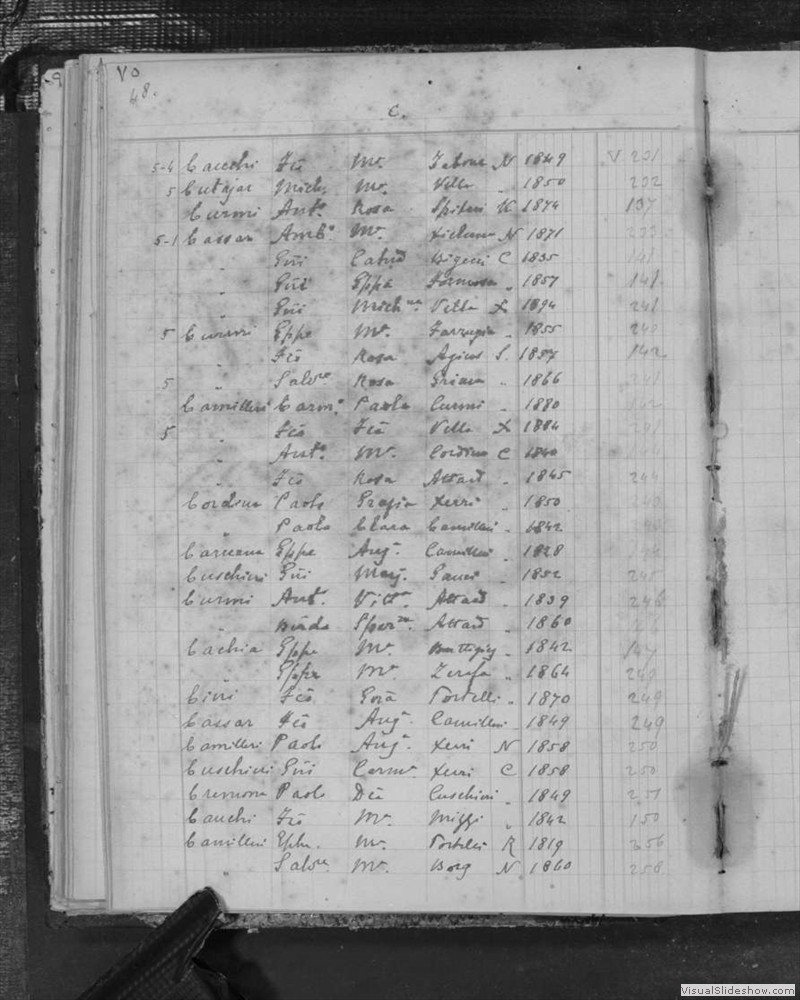 VO
48.
C.
5-4 Cauchi Fco Ma. Zahra N 1849 V 231
5 Cutajar Mich. Ma. Vella " 1850 232
Curmi Anto. Rosa Spiteri K 1874 137
5-1 Cassar Ambo. Ma. N 1871 233
" Giu Catnd C 1835 141
" Giu Eppa Formosa " 1857 141
" Giu Michna Vella X 1894 241
5 Curmi Eppe Ma. Farrugia " 1855 240
" Fco Rosa Agius S. 1857 142
5 " Salvre Rosa Grima " 1866 241
Camilleri Carmo Paola Curmi " 1880 142
5 " Fco Fca Vella X 1884 241
" Anto. Ma. Cordina C 1840
" Fco Rosa Attard " 1845 244
Cordina Paolo Grazia Xerri " 1850
" Paolo Clara Camilleri " 1842
Caruana Eppe Anga. Camilleri " 1828
Cuschieri Giu Marg. Gauci " 1852 245
Curmi Anto. Vitta Attard " 1839 246
" Sperza. Attard " 1860
Cachia Eppe Ma. Buttigieg " 1842 147
" Eppe Ma. Zerafa " 1864 249
Cini Fco Gora Portelli " 1870 249
Cassar Fco Anga. Camilleri " 1849 249
Camilleri Paolo Anga. Xerri N 1858 250
Cuschieri Giu Carma. Xerri C 1858 250
Cremona Paolo Dca Cuschieri " 1849 251
Cauchi Fco Ma. Mizzi " 1842 150
Camilleri Ephe. Ma. Portelli R 1819 256
" Salvre. Ma. Borg N 1860 258
VisualSlideshow.com